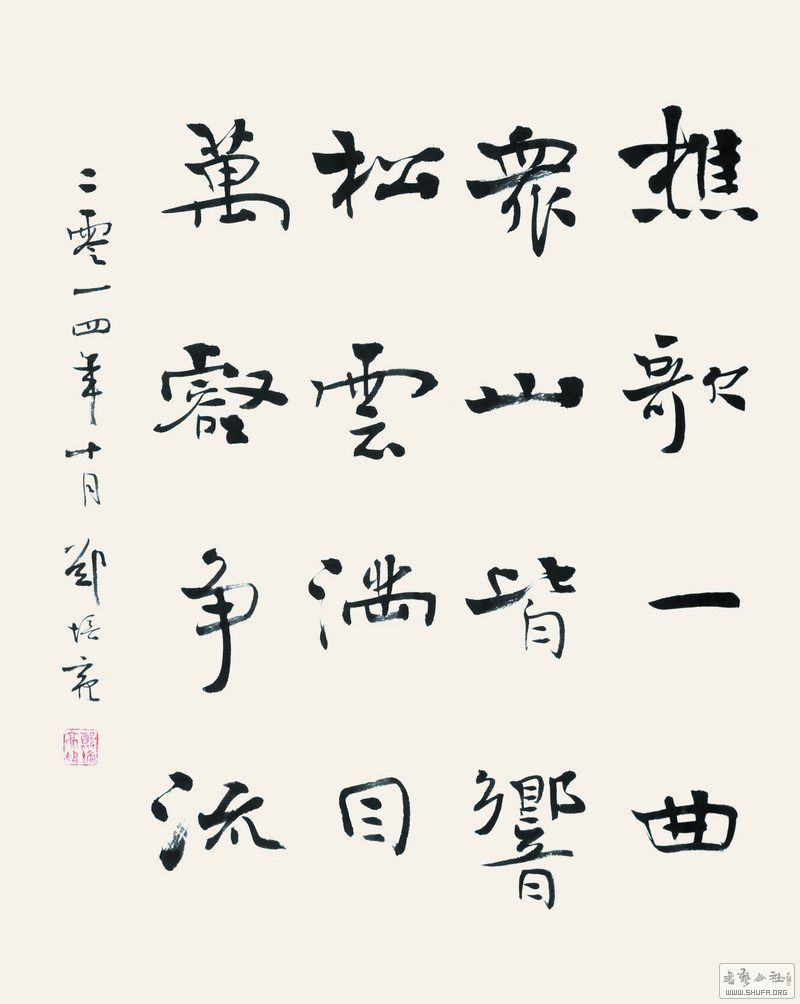 樵歌一曲
眾山皆響
松雲滿目
萬壑争流
二零一四年十月 郑培亮
書藝公社
WWW.SHUFA.ORG